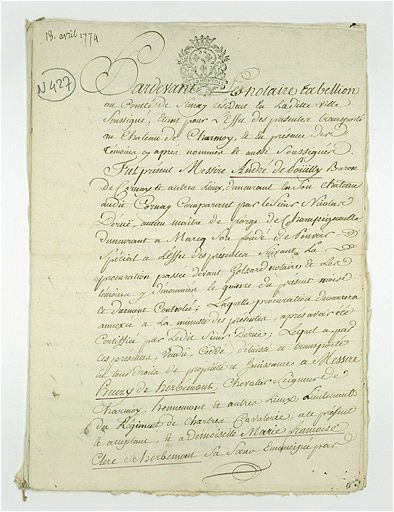 13. avril 1774
N 427
Pardevant Le notaire tabellion
au Comté de résident en laditte ville
Soussigné, étant pour L'effet des présentes transporté
au Chateau de Charmoy, et en présence des
témoins cy après nommés et aussi Soussignés
Fut présent Messire André de Pouilly Baron
de Cornay et autres Lieux, demeurant en Son château
audit Cornay Comparant par le Sieur Nicolas
ancien maître de forge de Champigneulle
demeurant à Marcq Son fondé de Pouvoir
Spécial à L'effet des présentes Suivant La
procuration passée devant notaire
témoins y dénommés le quatre du présent mois
et duement Controlée; Laquelle procuration demeurera
annexée à La minutte des présentes, après avoir été
Certiffiée par Ledit Sieur Lequel a par
ces présentes, Vendu, Cédé délaissé et transporté
en tous droits de propriété et Jouissance à Messire
de herbemont, Chevalier Seigneur de
Charmoy, et autres Lieux Lieutenant
au Régiment de Chartres Cavalerie à ce présent
et acceptant et à Demoiselle Marie françoise
Clere de herbemont Sa Soeur Emancipée par